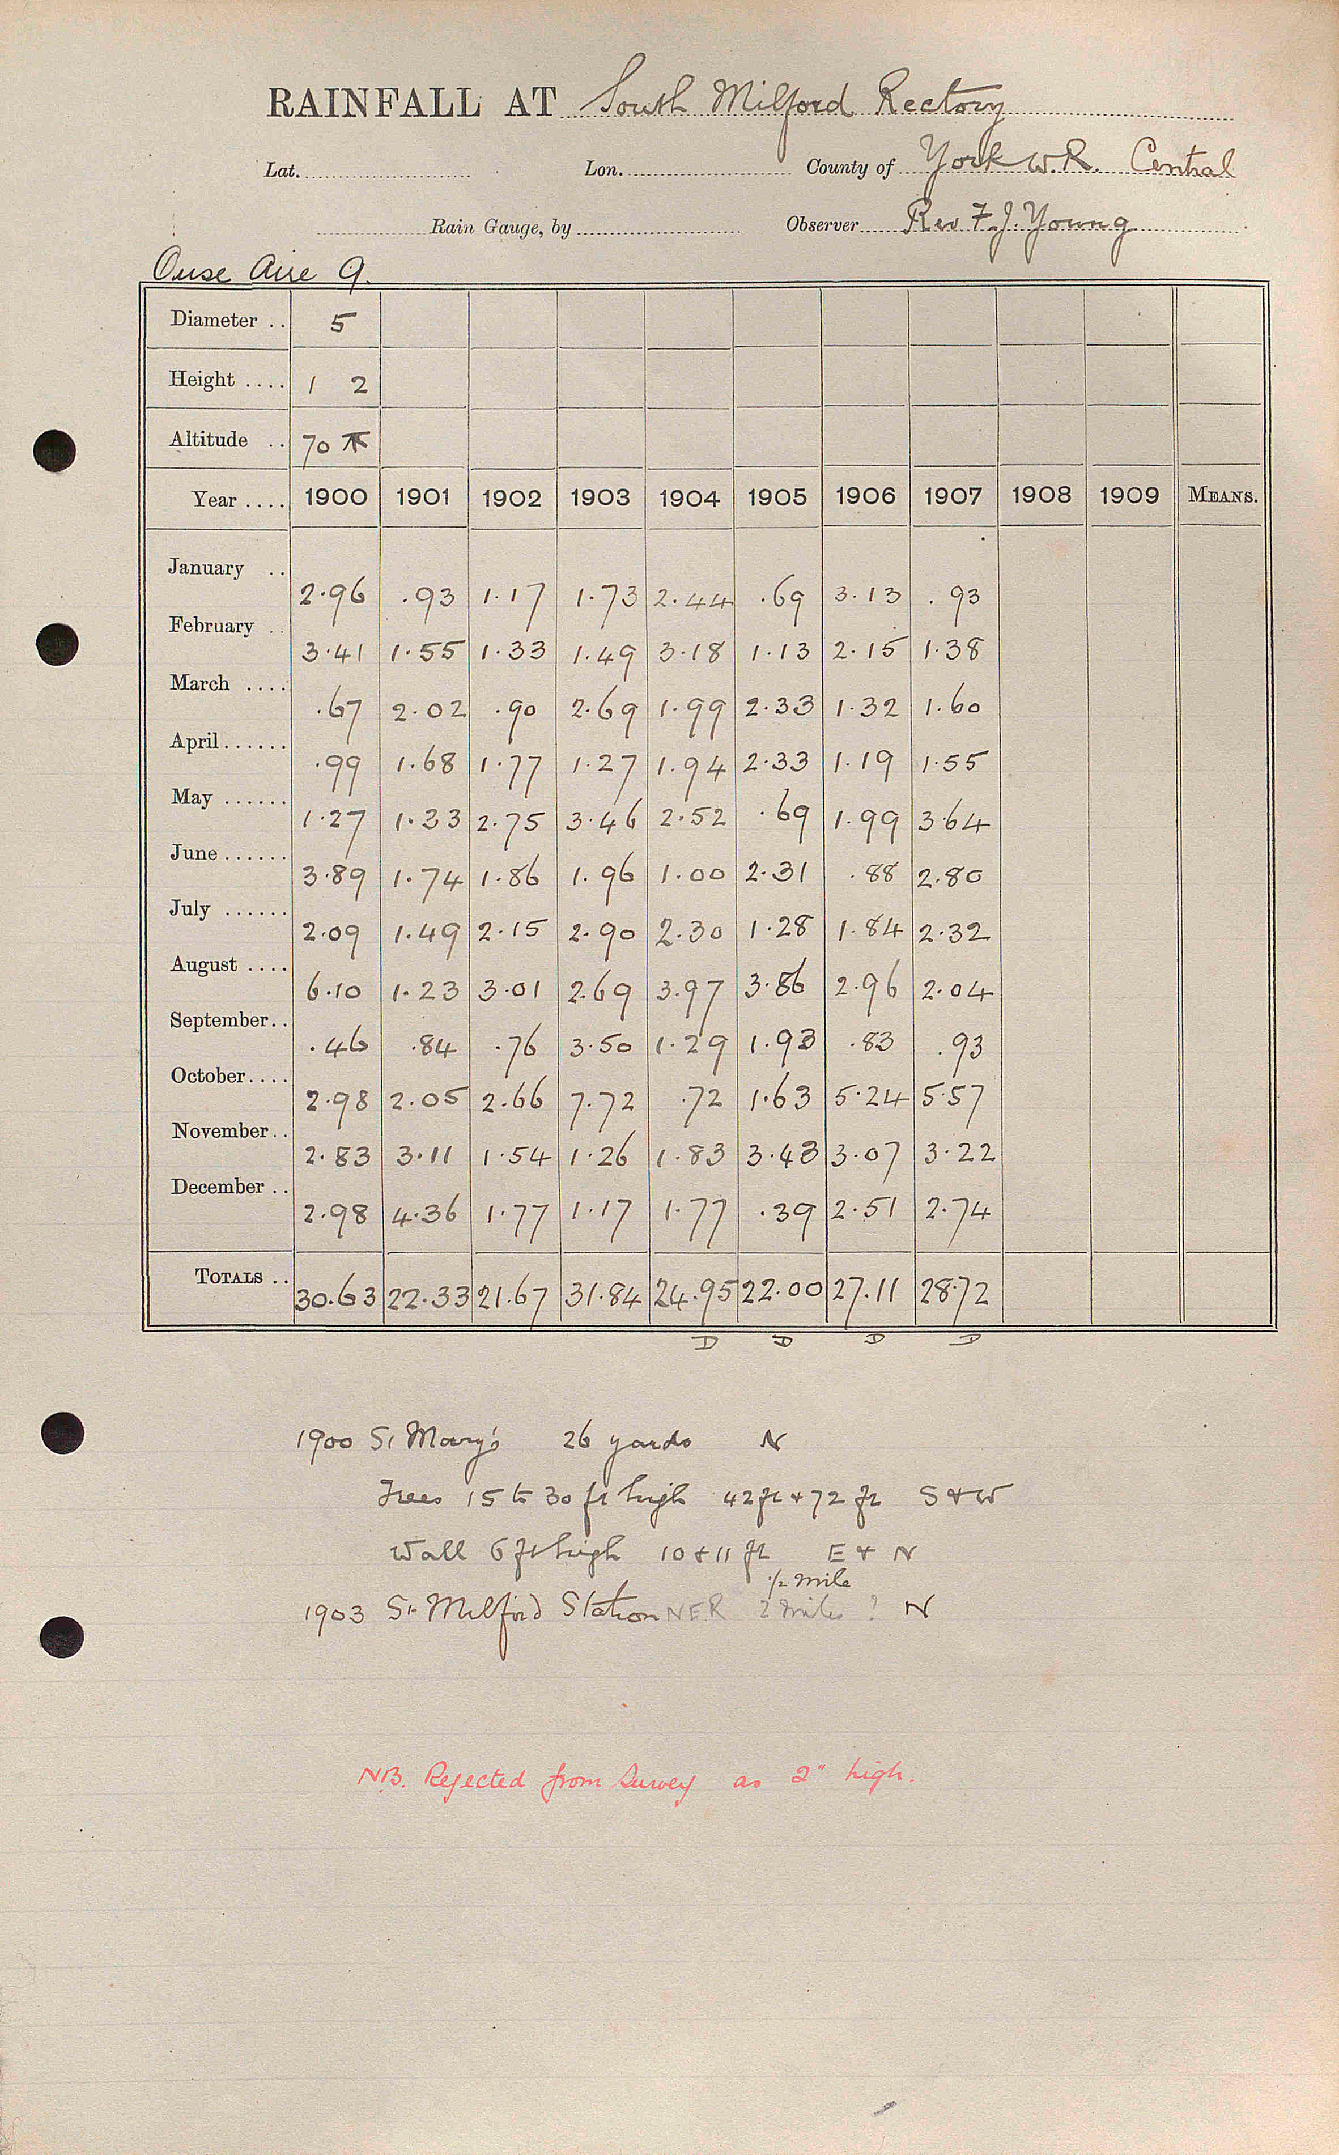 RAINFALL AT South Milford Rectory
Lat. Lon. County of York W.R. Central
Rain Gauge, by Observer Rev F. J. Young
Ouse Aire 9.
Diameter .. 5
Height .... 1 2
Altitude .. 70
Year .... 1900 1901 1902 1903 1904 1905 1906 1907 1908 1909 MEANS.
January .. 2.96 .93 1.17 1.73 2.44 .69 3.13 .93
February .. 3.41 1.55 1.33 1.49 3.18 1.13 2.15 1.38
March .... .67 2.02 .90 2.69 1.99 2.33 1.32 1.60
April...... .99 1.68 1.77 1.27 1.94 2.33 1.19 1.55
May ...... 1.27 1.33 2.75 3.46 2.52 .69 1.99 3.64
June...... 3.89 1.74 1.86 1.96 1.00 2.31 .88 2.80
July ...... 2.09 1.49 2.15 2.90 2.30 1.28 1.84 2.32
August .... 6.10 1.23 3.01 2.69 3.97 3.86 2.96 2.04
September.. .46 .84 .76 3.50 1.29 1.93 .83 .93
October.... 2.98 2.05 2.66 7.72 .72 1.63 5.24 5.57
November.. 2.83 3.11 1.54 1.26 1.83 3.43 3.07 3.22
December .. 2.98 4.36 1.77 1.17 1.77 .39 2.51 2.74
TOTALS .. 30.63 22.33 21.67 31.84 24.95 22.00 27.11 28.72
D D D D
1900 St Mary's 26 yards N
Trees 15 to 30 ft high 42 ft + 72 ft S + W
Wall 6 ft high 10 + 11 ft E + N
1/2 mile
1903 St. Milford Station NER 2 miles ? N
NB. Rejected from Survey as 2" high.